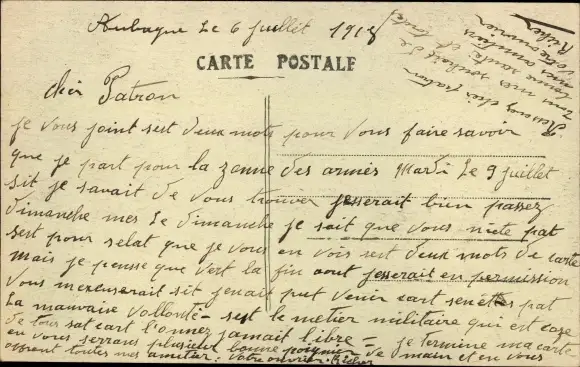 Aubagne Le 6 juillet 1918
CARTE POSTALE
cher Patron
je vous joint sest deux mots pour vous faire savoir
que je part pour la zonne des armés Mardi Le 9 juillet
sit je savait de vous trouver jesserait bien passez
dimanche mes Le dimanche je sait que vous niete pat
sest pour selat que je vous en vois sest deux mots de carte
mais je pense que vert la fin aout jesserait en permission
vous mexcuserait sit jenait put venir cart senéttes pat
La mauvaise vollonté - sest le metier militaire qui est cose
de tous sat cart l'onnez jamait libre = je termine ma carte
en vous serrans plusieur bonne poignier de main et en vous
offrant toutes mes amitier : votre ouvrier Richer
Recevez cher Patron
tous mes souhait de
bonne santé et toute
votre
Richer